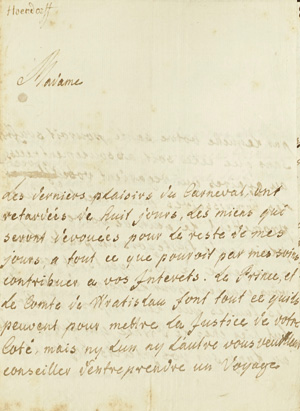 Madame
Les derniers plaisirs du Carneval ont
retardées de huit jours, des miens qui
seront devouées pour le reste de mes
jours a tout ce que pouroit par mes soins
contribuer a vos Interets: le Prince, et
le Comte de Wratislau font tout ce quils
peuvent pour mettre la Justice de votre
Coté, mais ny Lun ny L'autre vous veullent
conseiller d'entreprendre un Voyage